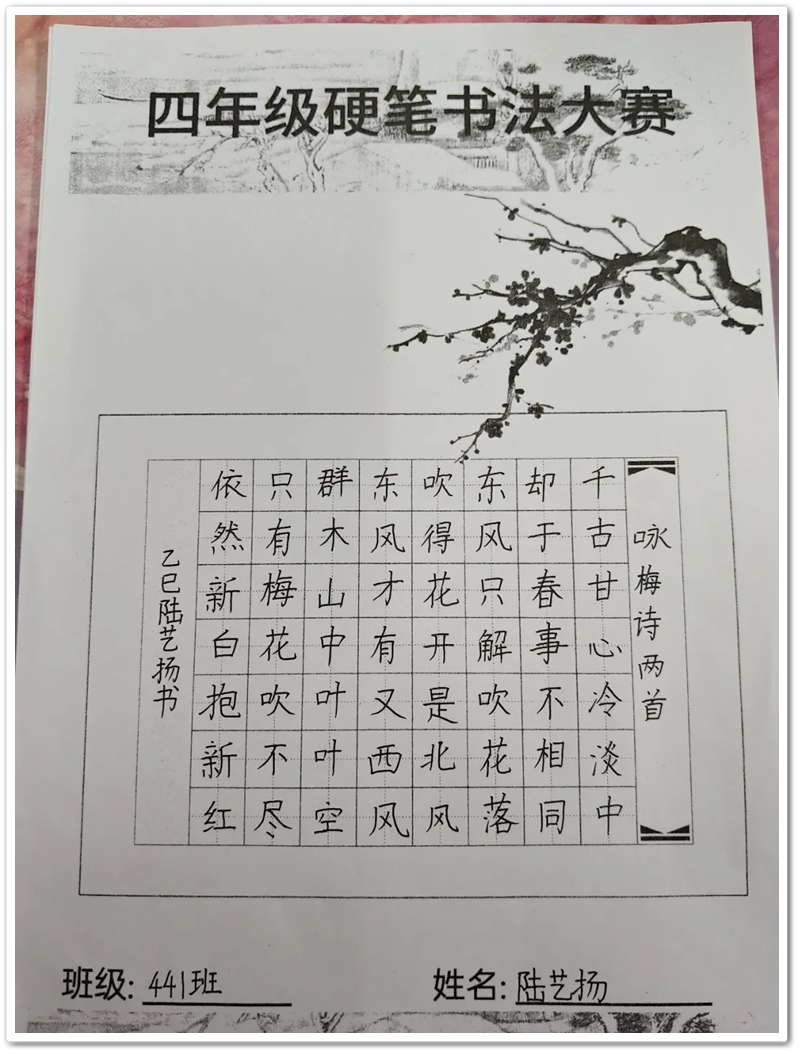 四年级硬笔书法大赛
咏梅诗两首
千古甘心冷淡中
却于春事不相同
东风只解吹花落
吹得花开是北风
东风才有又西风
群木山中叶叶空
只有梅花吹不尽
依然新白抱新红
乙巳陆艺扬书
班级: 441班
姓名: 陆艺扬